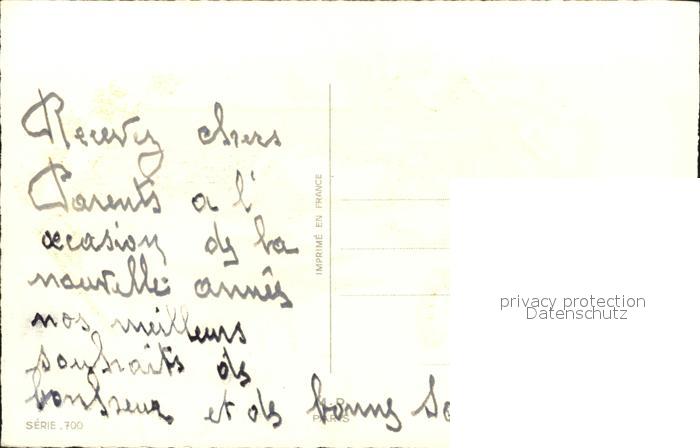 Recevez chers
Parents a l'
occasion de la
nouvelle année
nos meilleurs
souhaits de
bonheur et de bonne Sa
IMPRIMÉ EN FRANCE
PARIS
SÉRIE .700
privacy protection
Datenschutz